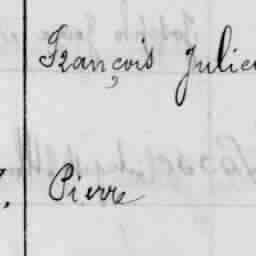 François Julien
Pierre